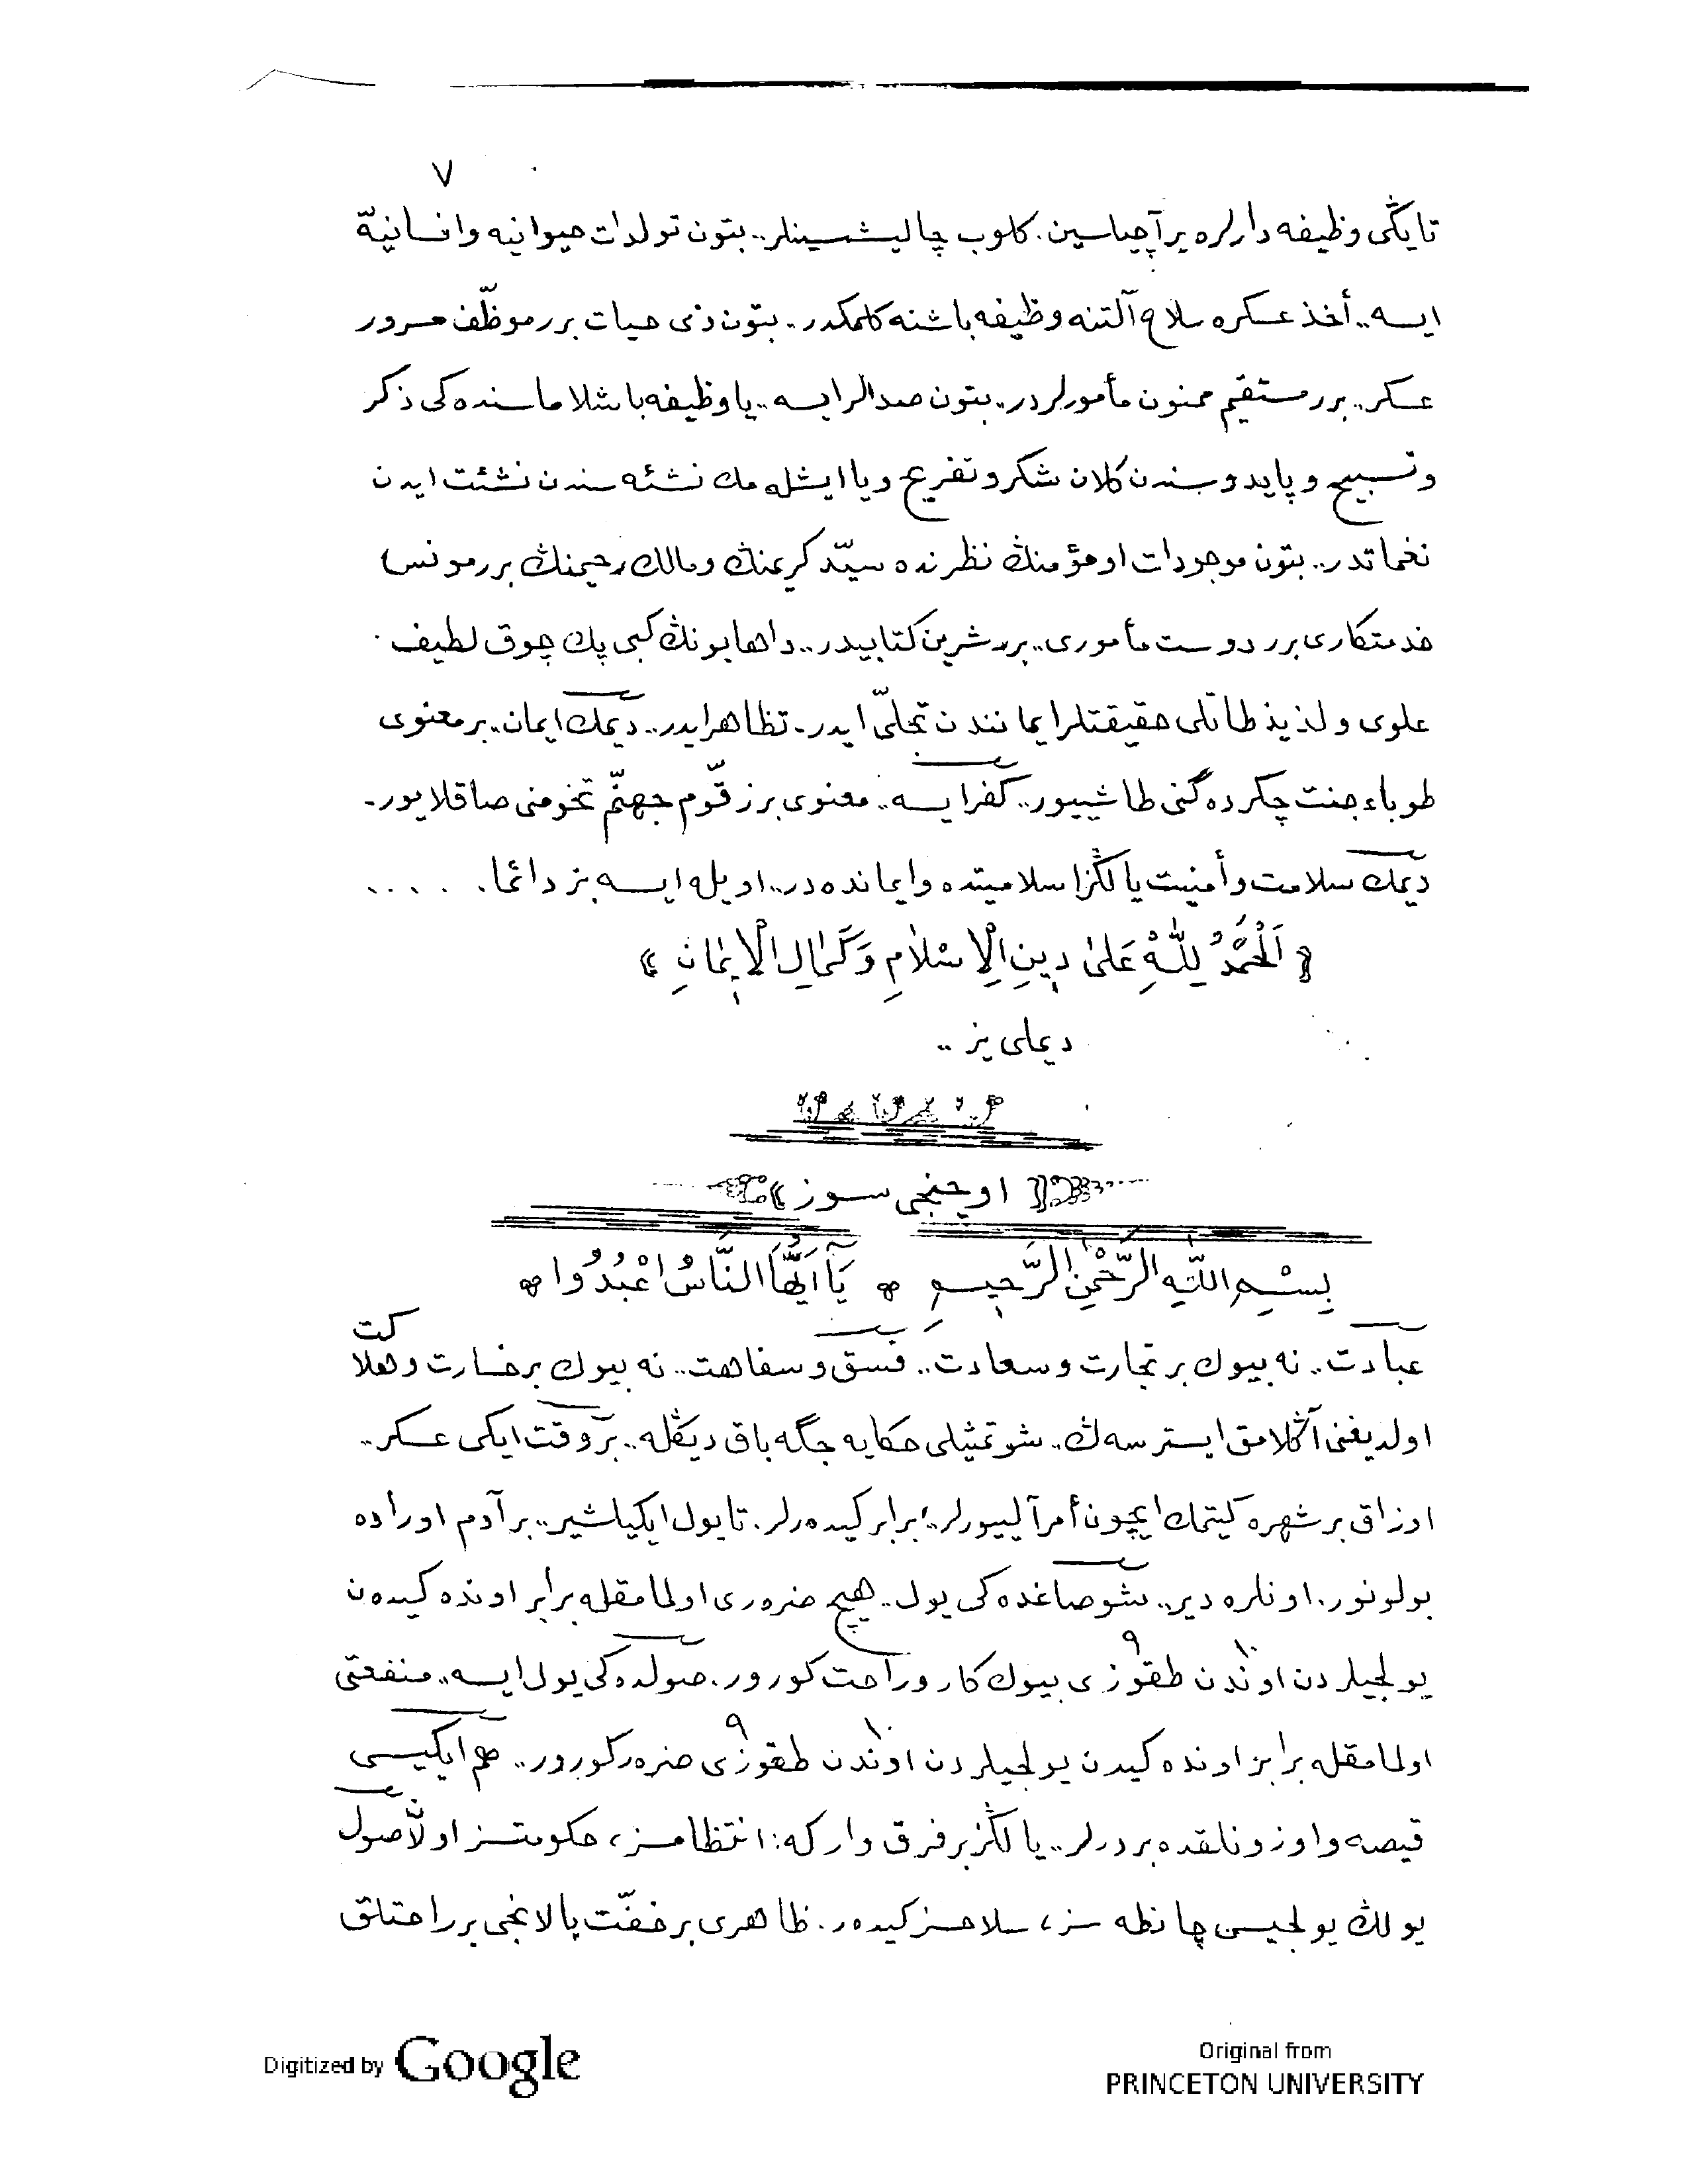 ٧
تا یڭی وظیفه‌دارلره یر آچیاسین. کلوب چالیشسینلر.. بتون تولدات حیوانیه وانسانیهّ
ایسه.. أخذ عسکره سلاح آلتنه وظیفه باشنه کلمکدر.. بتون ذی حیات برر موظّف مسرور
عسکر.. برر مستقیم ممنون مأمورلردر.. بتون صدالر ایسه.. یا وظیفه باشلاماسنده کی ذکر
وتسبیح و پایدوسندن کلان شکر وتفریح ویا ایشله مك نشئه سندن نشئت ایدن
نغماتدر.. بتون موجودات او مؤمنڭ نظرنده سیّد کریمنڭ ومالك رحیمنڭ برر مونس
خدمتکاری برر دوست مأموری.. برر شرین کتابیدر.. داها بونڭ کبی پك چوق لطیف
علوی ولذیذ طاتلی حقیقتلر ایماندن تجلّی ایدر. تظاهر ایدر.. دیمك ایمان.. بر معنوی
طوباء جنت چکرده گنی طاشییور.. کفر ایسه.. معنوی بر زقّوم جهنّم تخومنی صاقلایور.
دیمك سلامت وأمنیت یالڭز اسلامیتده وایمانده در.. اویله ایسه بز دائما. . . . .
﴿ اَلْحَمْدُ لِلّٰهِ عَلٰى دِينِ الْاِسْلَامِ وَكَمَالِ الْاِيمَانِ ﴾
دیملی یز ..
﴿ اوچنجی سوز ﴾
بِسْمِ اللّٰهِ الرَّحْمٰنِ الرَّحِيمِ * يَآ اَيُّهَا النَّاسُ اعْبُدُوا *
عبادت.. نه بیوك بر تجارت وسعادت.. فسق وسفاهت.. نه بیوك بر خسارت وهلاکت
اولدیغنی آڭلامق ایسترسه ڭ.. شو تمثیلی حکایه جگه باق دیڭله.. بر وقت ایکی عسکر..
اوزاق بر شهره کیتمك ایچون أمر آلییورلر.. برابر کیده رلر. تا یول ایکیلشیر.. بر آدم اوراده
بولونور. اونلره دیر.. شو صاغده کی یول.. هیچ ضروری اولمامقله برابر اونده کیدەن
یولجیلردن اوندن ١٠ طقوزی ٩ بیوك کار وراحت کورور. صولده کی یول ایسه.. منفعتی
اولمامقله برابر اونده کیدن یولجیلردن اوندن ١٠ طقوزی ٩ ضرر کورور.. هم ایکیسی
قیصه واوزونلقده بردرلر.. یالڭز بر فرق وار که: انتظامسز، حکومتسز اولان صول
یولڭ یولجیسی چانطه سز، سلاحسز کیده ر. ظاهری بر خفّت یالانجی بر راحتلق
Digitized by Google
Original from
PRINCETON UNIVERSITY